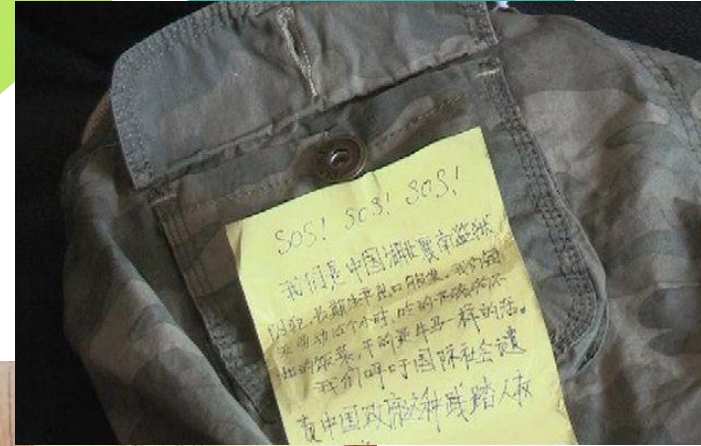 SOS! SOS! SOS!
我们是中国湖北襄南监狱
囚犯,长期生产出口服装。我们每
天劳动15个小时,吃的不如猪狗
的饭菜,干的是牛马一样的活。
我们呼吁国际社会谴
责中国政府这种践踏人权